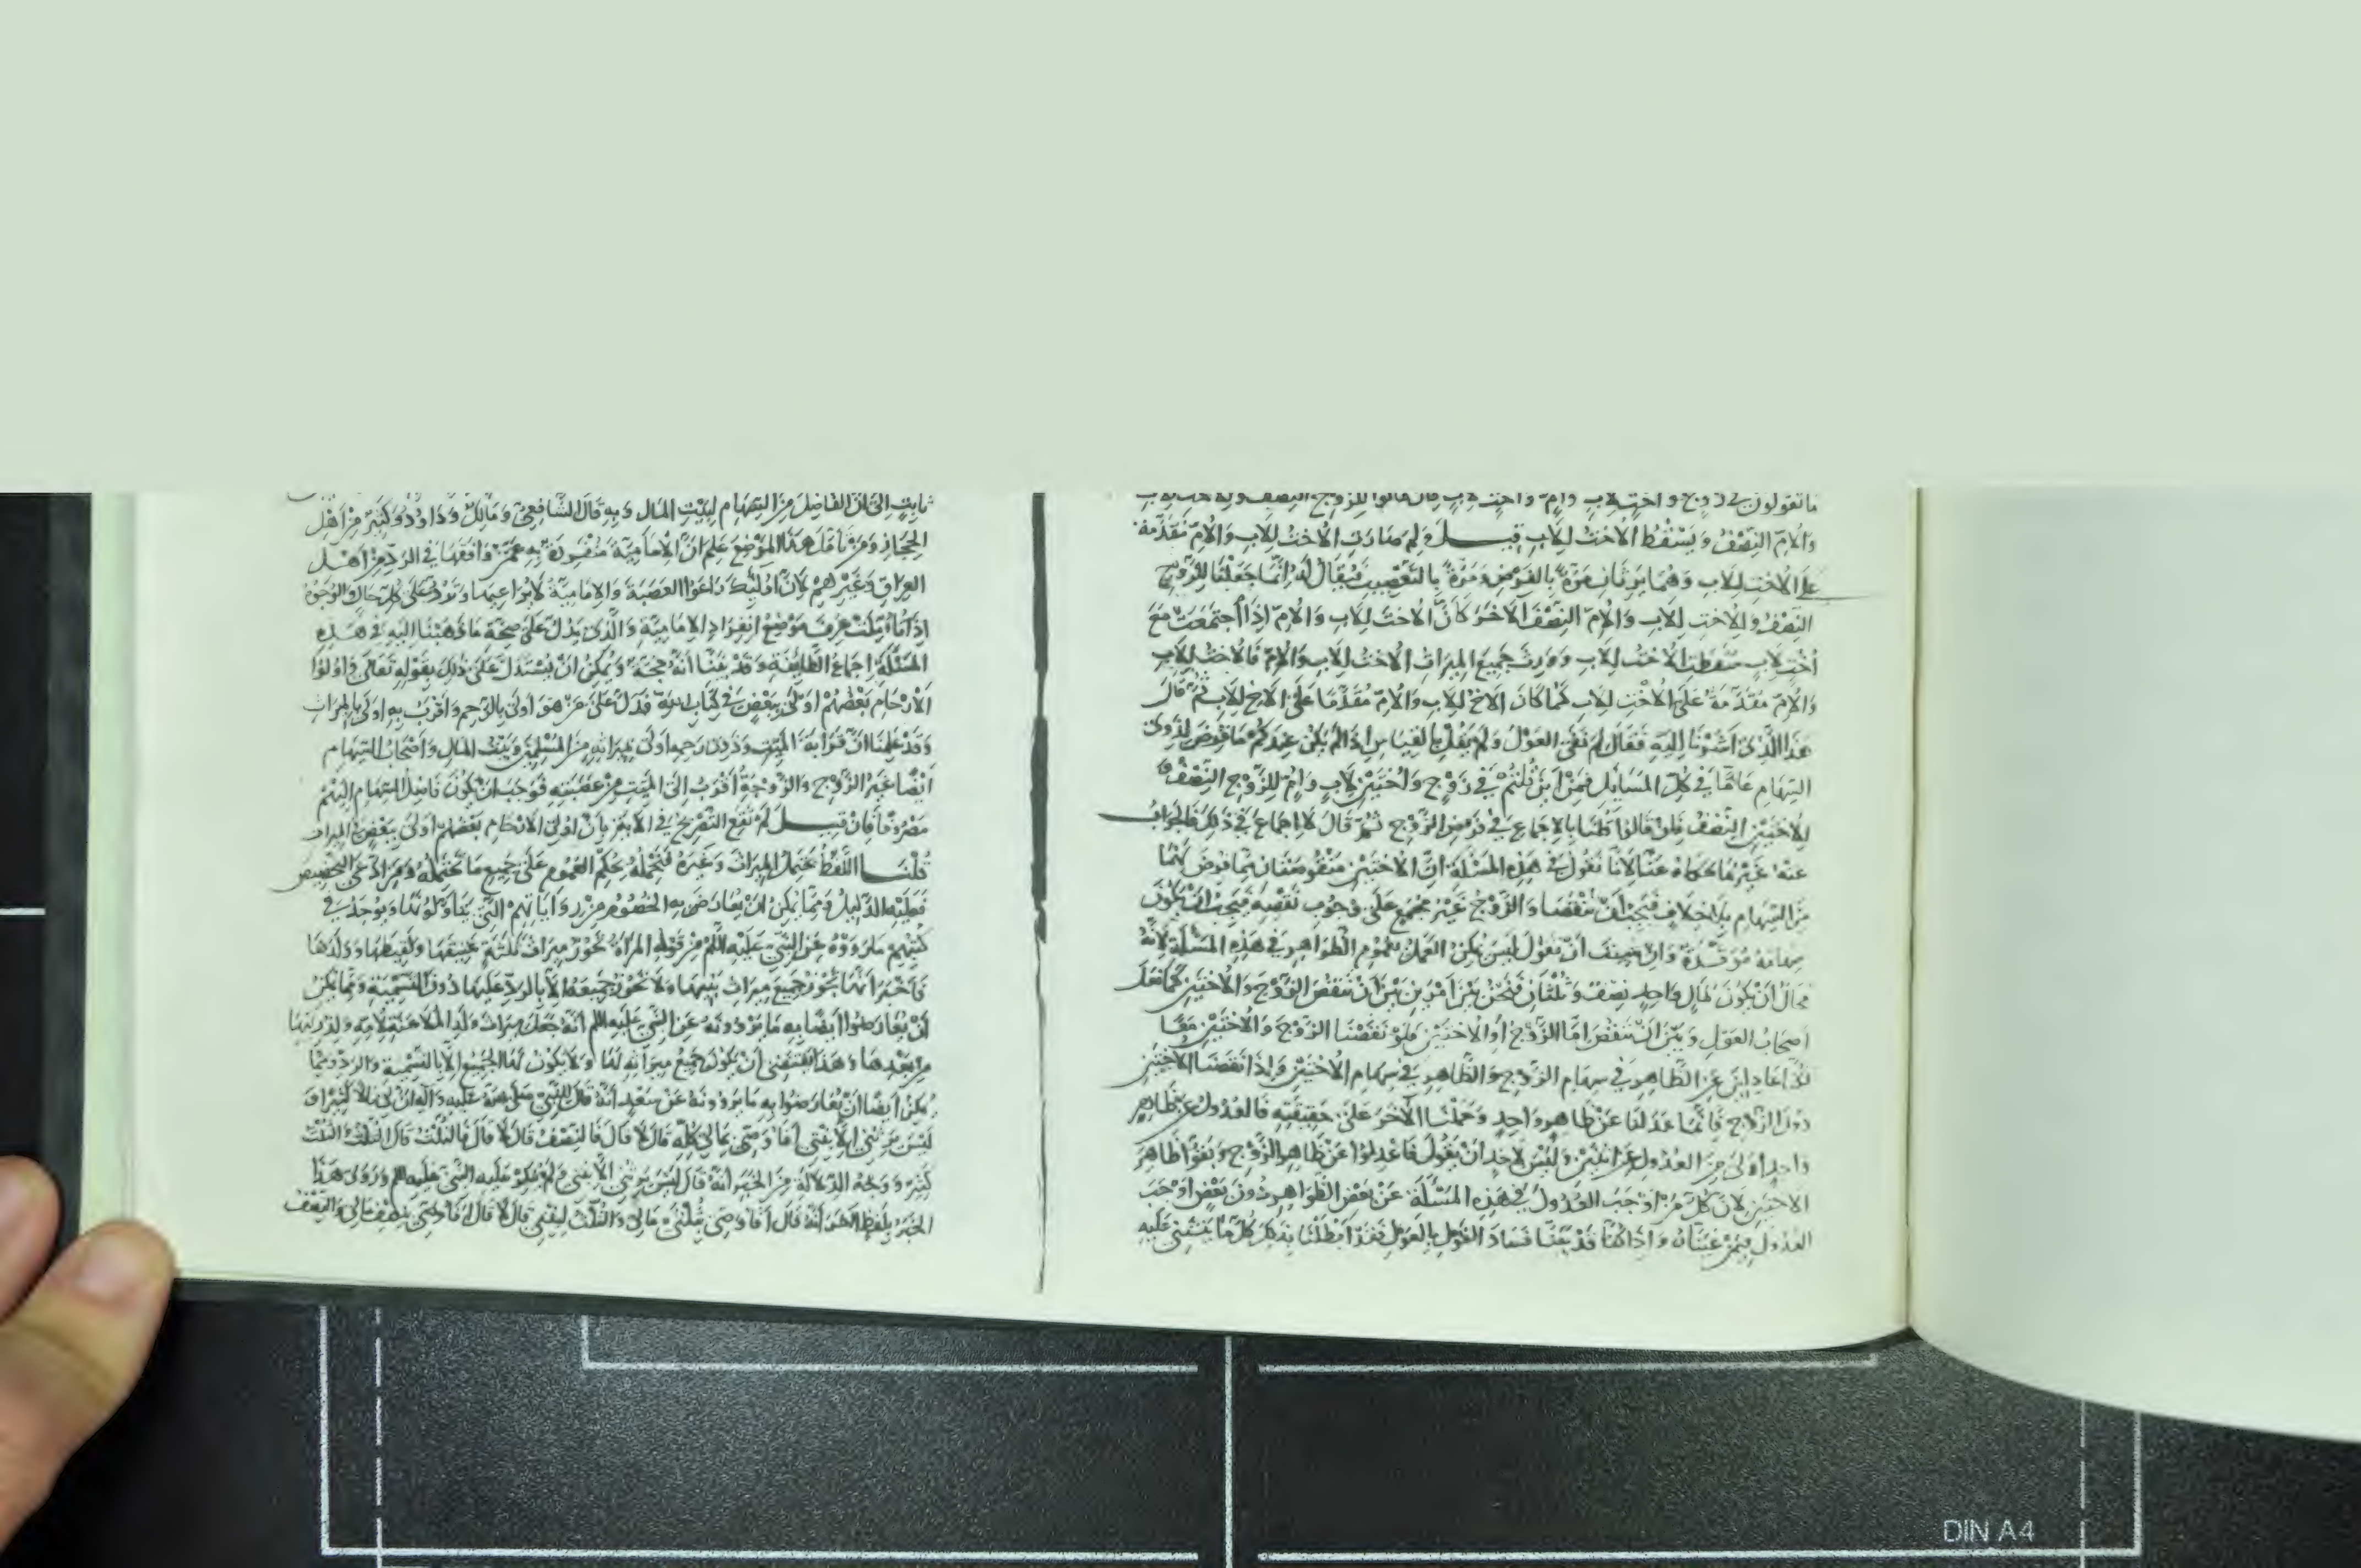 ما تقولون في زوج واخت لاب وام واخت لاب فان قالوا للزوج النصف وللاخت للاب
والام النصف ويسقط الاخت للاب قيل ولم صارت الاخت للاب والام مقدمة
على الاخت للاب وهما يرثان مرة بالفرض ومرة بالتعصيب فيقال له انما جعلنا للزوج
النصف وللاخت للاب والام النصف الاخر كان الاخت للاب والام اذا اجتمعت مع
اخت لاب سقطت الاخت للاب وورث جميع الميراث الاخت للاب والام فالاخت للاب
والام مقدمة على الاخت للاب كما كان الاخ للاب والام مقدما على الاخ للاب ثم قال
هذا الذي اشرنا اليه فقال لم نفى العول ولم يقل بالقياس اذا لم يكن عندكم ما فرض لذوي
السهام عاما في كل المسايل فمن اين قلتم في زوج واختين لاب وام للزوج النصف و
للاختين النصف فان قالوا قلنا بالاجماع في فرض الزوج ثم قال لا اجماع في ذلك فالجواب
عنه غير ما حكاه عنا لانا نقول في هذه المسئلة ان الاختين منقوصتان مما فرض لهما
من السهام بلا خلاف فيجب ان تنقصا والزوج غير مجمع على وجوب نقصه فيجب ان تكون
سهامه موفرة وان شئت ان تقول ليس يمكن العمل بعموم الظواهر في هذه المسئلة لانه
محال ان يكون لمال واحد نصف وثلثان فنحن بين امرين بين ان ننقص الزوج والاختين كما فعل
اصحاب العول وبين ان ننقص اما الزوج او الاختين فلو نقصنا الزوج والاختين معا
لكنا عادلين عن الظاهر في سهام الزوج والظاهر في سهام الاختين واذا نقصنا الاختين
دون الزوج فانما عدلنا عن ظاهر واحد وحملنا الاخر على حقيقته فالعدول عن ظاهر
واحد اولى من العدول عن اثنين وليس لاحد ان يقول فاعدلوا عن ظاهر الزوج وبقوا ظاهر
الاختين لان كل من اوجب العدول في هذه المسئلة عن بعض الظواهر دون بعض اوجب
العدول فيمن عيناه واذا كنا قد بينا فساد القول بالعول فقد ابطلنا بذلك كل ما يبتنى عليه
ثابت الى ان الفاضل من السهام لبيت المال وبه قال الشافعي ومالك وداود وكثير من اهل
الحجاز ومن تامل هذا الموضع علم ان الامامية منفردة به عمن وافقها في الرد من اهل
العراق وغيرهم لان اوليك راعوا العصبة والامامية لا يراعيها وترد على كل حال والوجوه
اذا تاملت عرف موضع انفراد الامامية والذي يدل على صحة ما ذهبنا اليه في هذه
المسئلة اجماع الطايفة وقد بينا انه حجة ويمكن ان يستدل على ذلك بقوله تعالى واولوا
الارحام بعضهم اولى ببعض في كتاب الله فدل على من هو اولى بالرحم واقرب به اولى بالميراث
وقد علمنا ان قرابة الميت وذوي رحمه اولى بميراثه من المسلمين وبيت المال واصحاب السهام
ايضا غير الزوج والزوجة اقرب الى الميت من عصبته فوجب ان يكون فاضل السهام اليهم
مصروفا فان قيل لم تقع التصريح في الاية بان اولي الارحام بعضهم اولى ببعض في الميراث
قلنا اللفظ يحتمل الميراث وغيره فنحمله بحكم العموم على جميع ما تحتمله ومن ادعى التخصيص
فعليه الدليل ومما يمكن ان يعارض به الخصوم من رواياتهم التي يتداولونها ويوجد في
كتبهم ما رووه عن النبي عليه السلم من قوله المراة تحوز ميراث ثلثة عتيقها ولقيطها وولدها
فاخبر انها تحوز جميع ميراث بنيها ولا تحوز جميعه الا بالرد عليها دون التسمية ومما يمكن
ان يعارضوا ايضا به ما يروونه عن النبي عليه السلم انه جعل ميراث ولد الملاعنة لامه ولذريتها
من بعدها وهذا يقتضي ان يكون جميع ميراثه لها ولا يكون لها الجميع الا بالتسمية والرد ومما
يمكن ايضا ان يعارضوا به ما يروونه عن سعد انه قال للنبي صلى الله عليه واله ان لي مالا كثيرا و
ليس يرثني الا بنتي افاوصي بمالي كله قال لا قال فالنصف قال لا قال فالثلث قال الثلث والثلث
كثير ووجه الدلالة من الخبر انه قال ليس يرثني الا بنتي ولم ينكر عليه النبي عليه السلم وروى هذا
الخبر بلفظ اخر انه قال افاوصي بثلثي مالي والثلث لبنتي قال لا قال افاوصي بنصف مالي والنصف